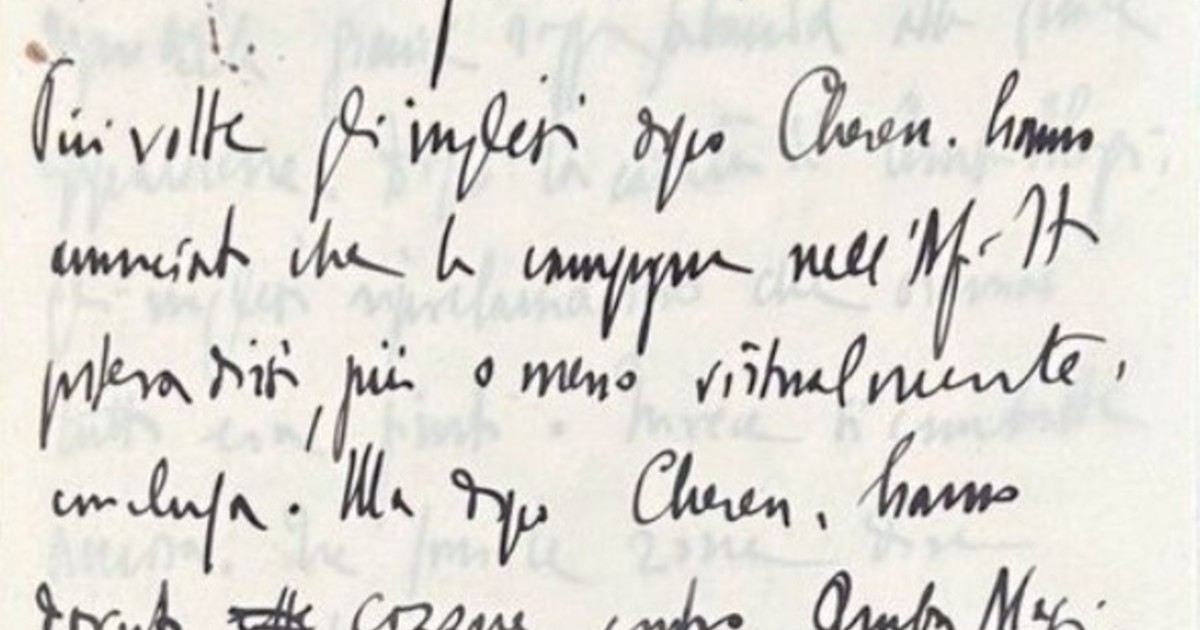 Più volte gli inglesi dopo Cheren. hanno
annunciato che la campagna nell'Af. It
poteva dirsi, più o meno virtualmente,
conclusa. Ma dopo Cheren, hanno
dovuto cozzare contro Amba